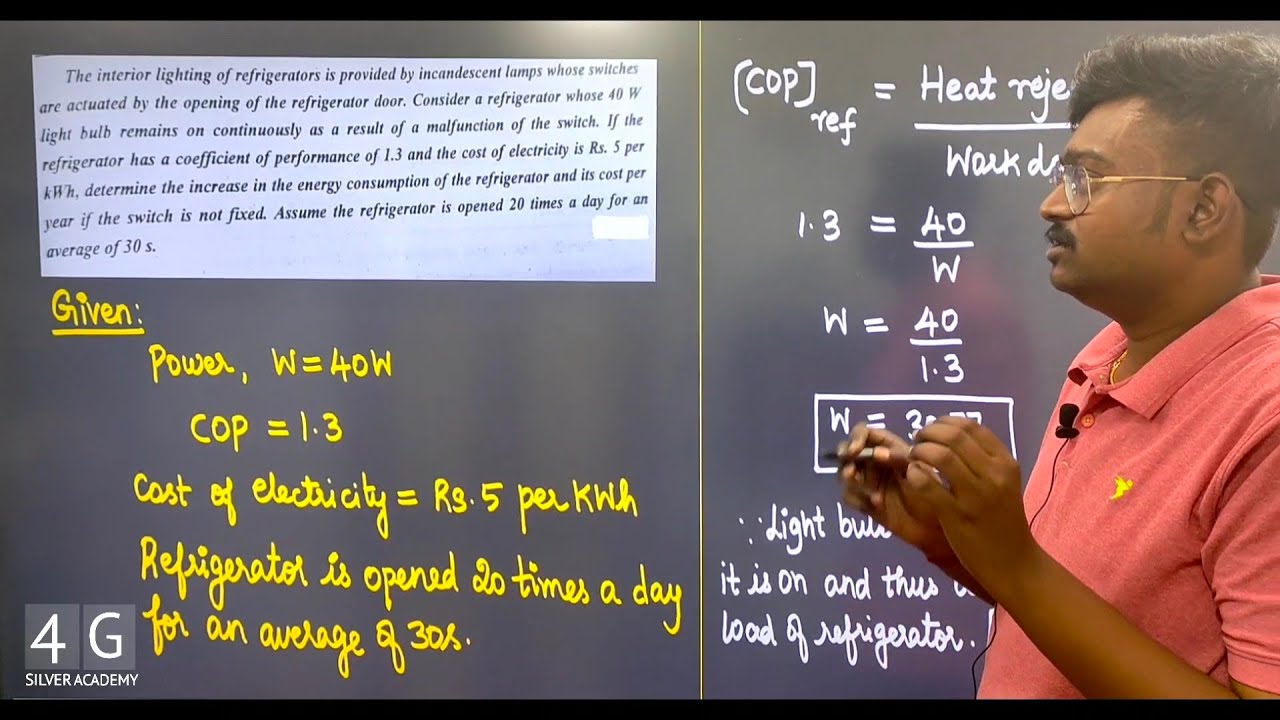 The interior lighting of refrigerators is provided by incandescent lamps whose switches
are actuated by the opening of the refrigerator door. Consider a refrigerator whose 40 W
light bulb remains on continuously as a result of a malfunction of the switch. If the
refrigerator has a coefficient of performance of 1.3 and the cost of electricity is Rs. 5 per
kWh, determine the increase in the energy consumption of the refrigerator and its cost per
year if the switch is not fixed. Assume the refrigerator is opened 20 times a day for an
average of 30 s.
Given:
Power, W = 40W
COP = 1.3
Cost of electricity = Rs. 5 per KWh
Refrigerator is opened 20 times a day
for an average of 30s.
4 G
SILVER ACADEMY
[COP]ref = Heat
Work
1.3 = 40
W
W = 40
1.3
W =
∵ Light
it is on and thus
load of refrigerator.